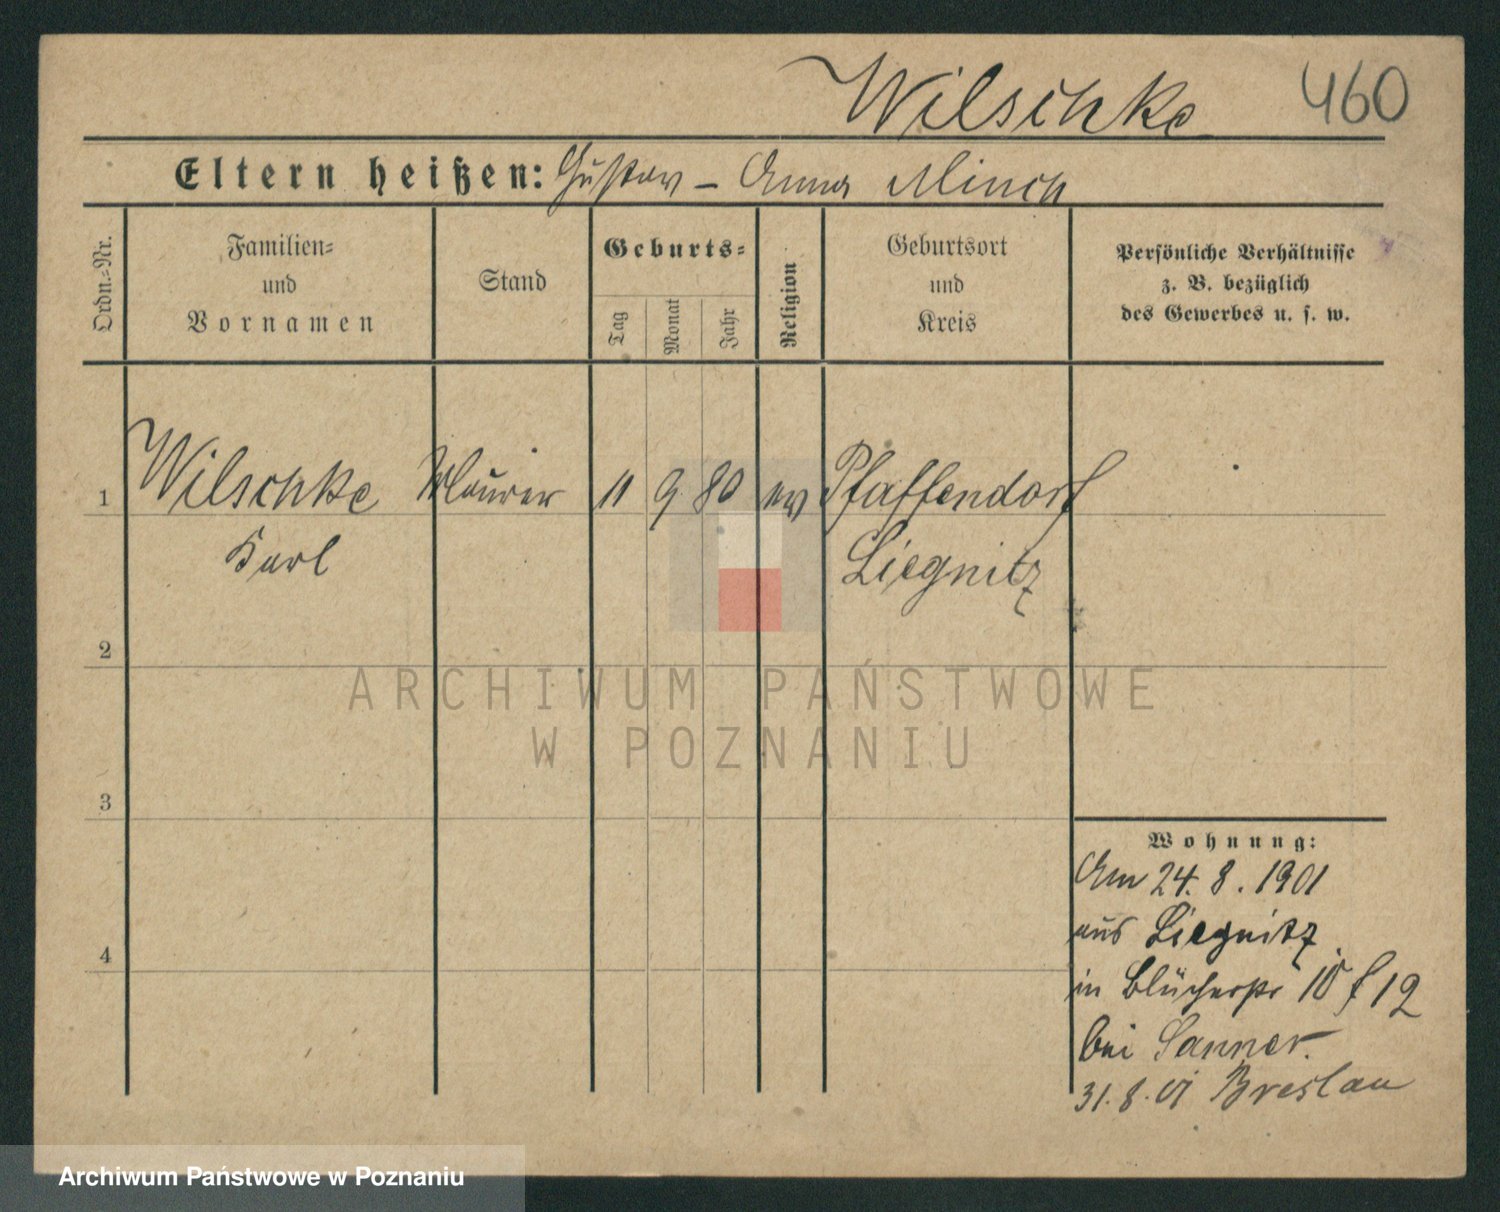 Wilschke 460
Eltern heißen: Gustav – Anna Minch
Ordn.-Nr.
Familien-
und
Vornamen
Stand
Geburts-
Tag
Monat
Jahr
Religion
Geburtsort
und
Kreis
Persönliche Verhältnisse
z. B. bezüglich
des Gewerbes u. s. w.
1 Wilschke Maurer 11 9 80 ev Pfaffendorf
Karl Liegnitz
2
ARCHIWUM PAŃSTWOWE
W POZNANIU
3
Wohnung:
Am 24. 8. 1901
aus Liegnitz
4
in Blücherstr 10 12
bei Sanner.
31. 8. 01 Breslau
Archiwum Państwowe w Poznaniu